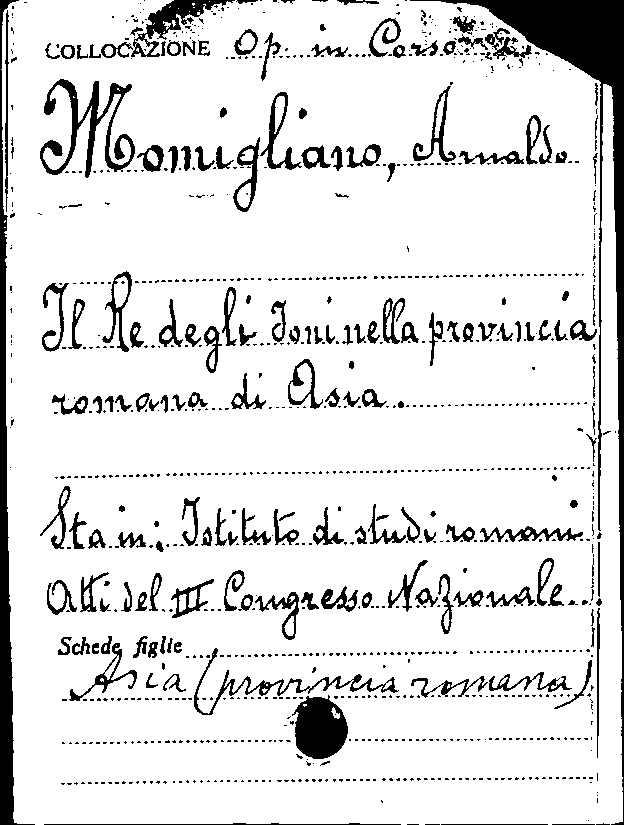 COLLOCAZIONE Op. in Corso
Momigliano, Arnaldo
Il Re degli Joni nella provincia
romana di Asia.
Sta in: Istituto di studi romani.
Atti del III Congresso Nazionale...
Schede figlie
Asia (provincia romana)